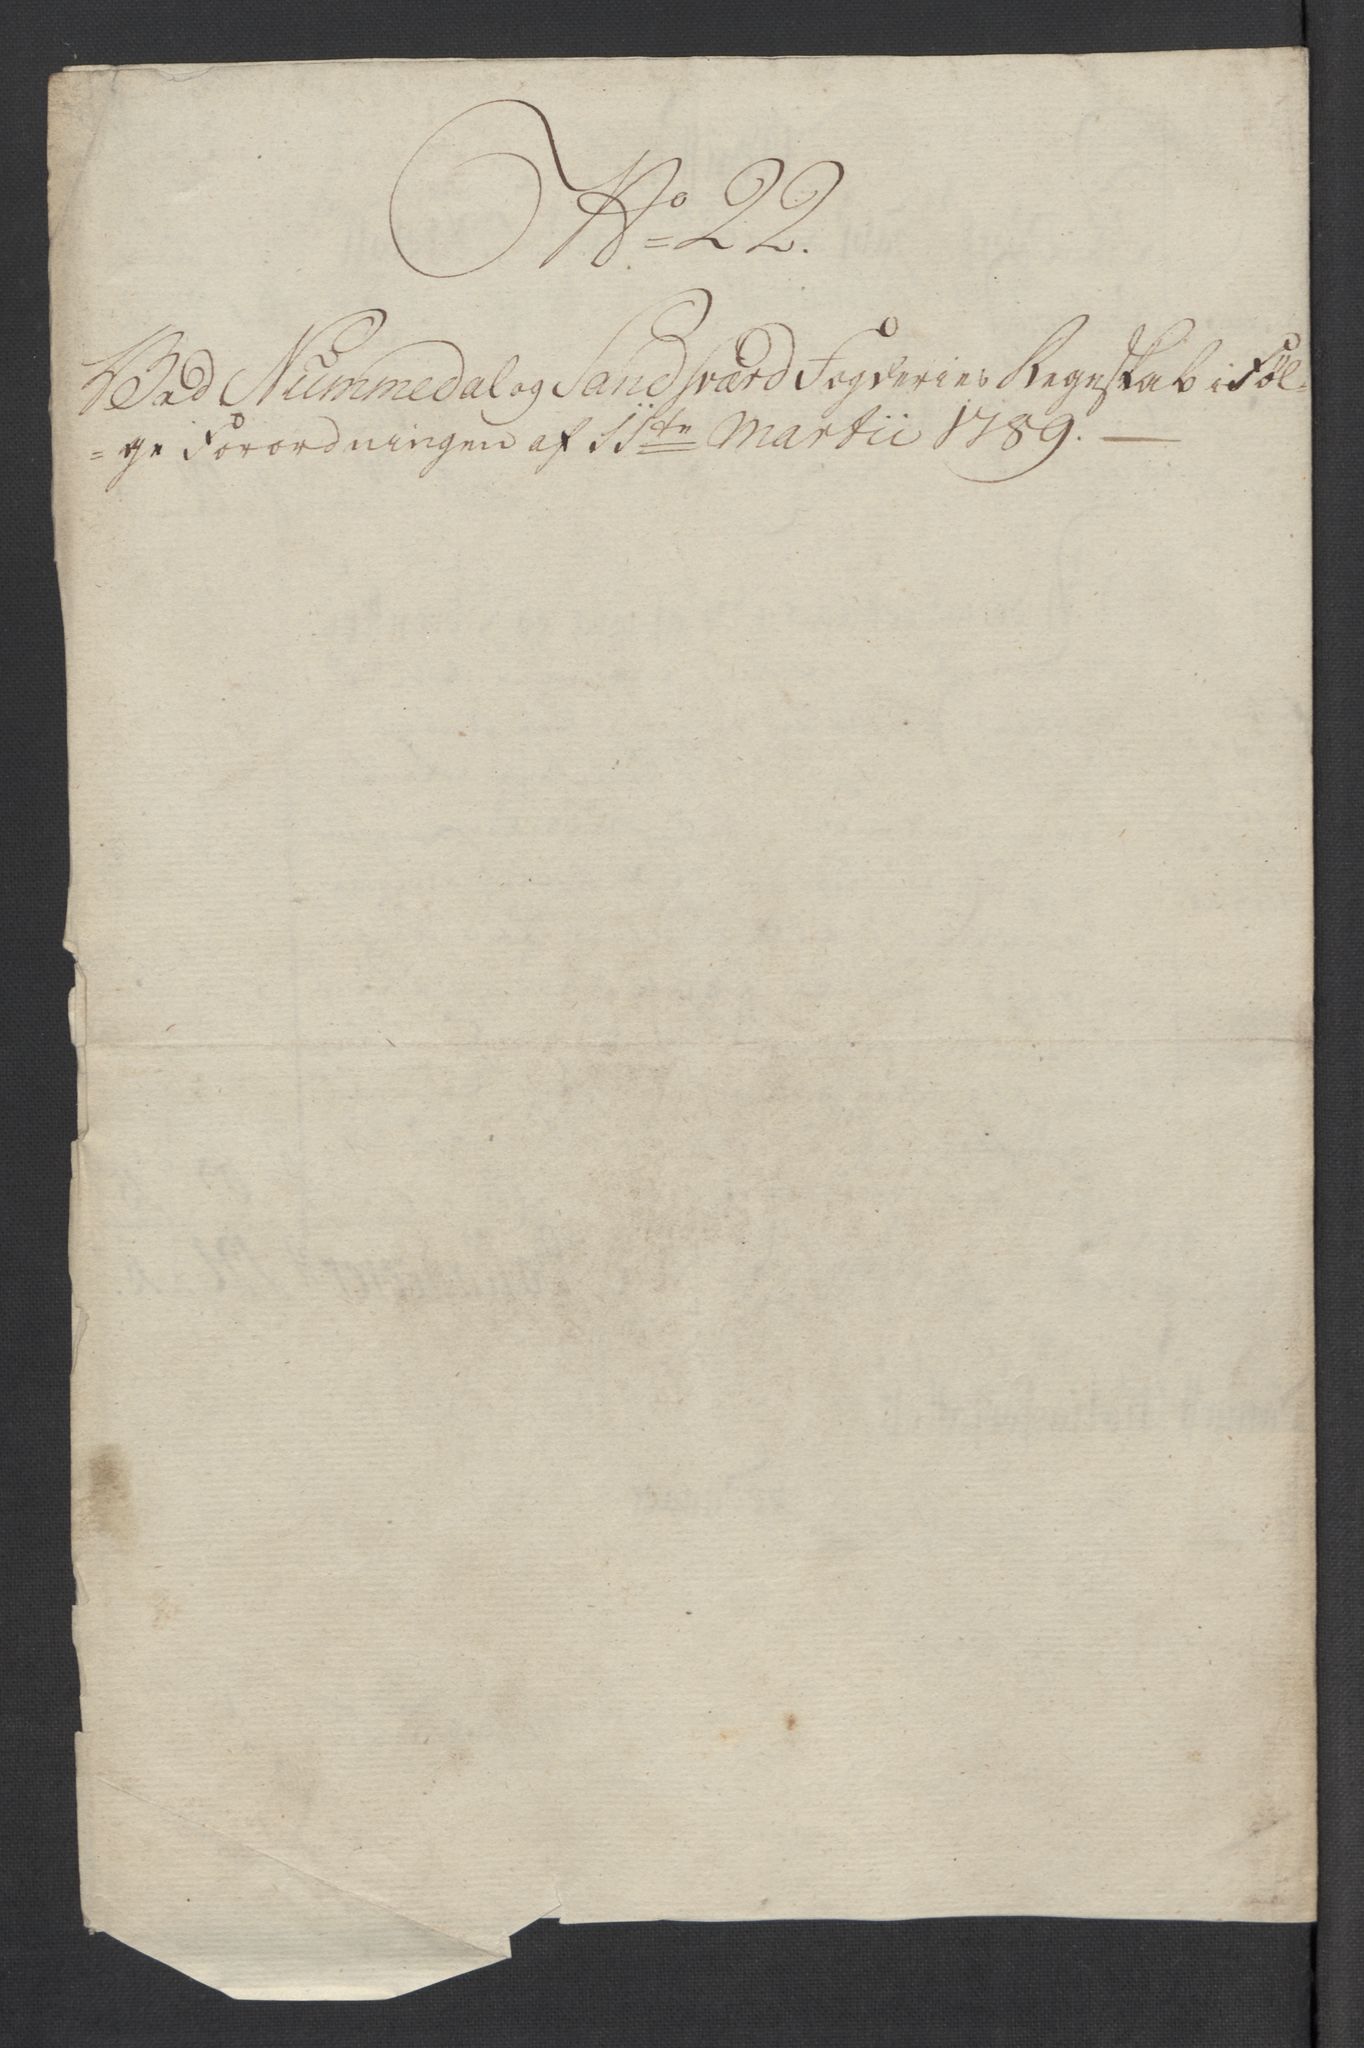 No 22.
Ved Nummedal og Sandsværd Fogderies Regnskab i Føl-
-ge Forordningen af 11te Martii 1789.